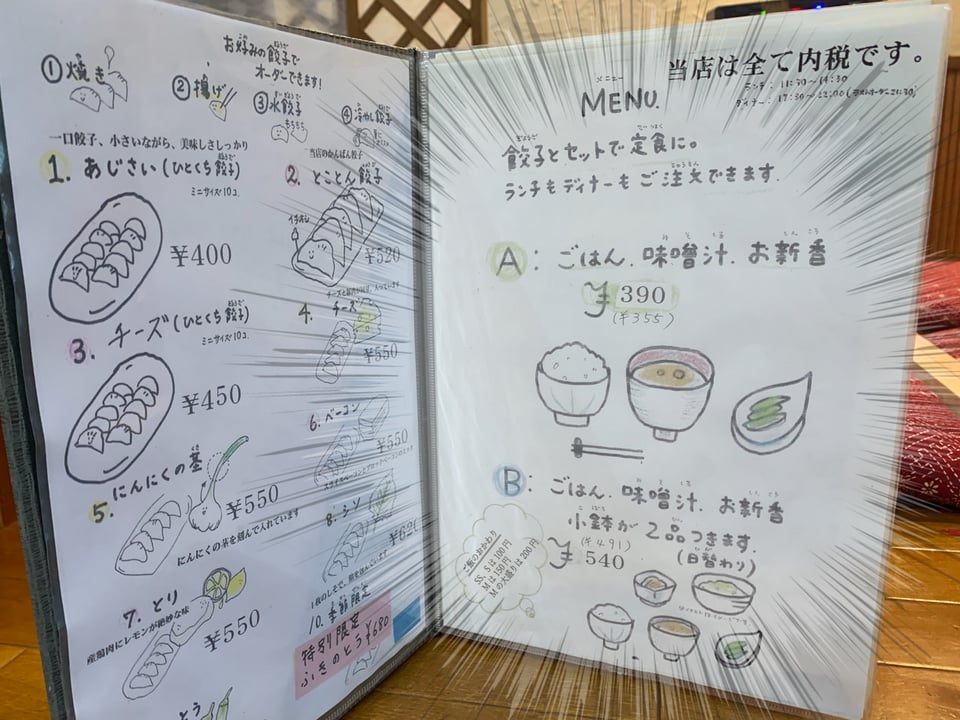 お好みの餃子で
オーダーできます!
①焼き
②揚げ
③水餃子
もちもち
④冷やし餃子
一口餃子、小さいながら、美味しさしっかり
1. あじさい(ひとくち餃子)
ミニサイズ10コ
¥400
当店のかんばん餃子
2. とことん餃子
イチオシ
¥520
3. チーズ(ひとくち餃子)
ミニサイズ10コ
¥450
4. チーズ
¥550
5. にんにくの茎
¥550
にんにくの茎を刻んで入れています
6. ベーコン
¥550
7. とり
産鶏肉にレモンが絶妙な味
¥550
8. シソ
10. 季節限定
特別限定
ふきのとう¥680
当店は全て内税です。
ランチ: 11:30〜14:30
メニュー
MENU.
餃子とセットで定食に。
ランチもディナーもご注文できます.
A: ごはん.味噌汁.お新香
¥390
(¥355)
B: ごはん.味噌汁.お新香
小鉢が2品つきます.
(¥491)
¥540
(日替わり)
ご飯のおかわり
SS、Sは100円
Mは150円
Mの大盛りは200円